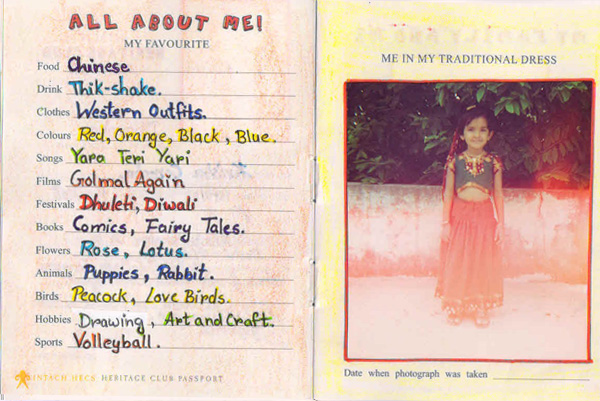 ALL ABOUT ME!
MY FAVOURITE
Food Chinese
Drink Thik-shake.
Clothes Western Outfits.
Colours Red, Orange, Black, Blue.
Songs Yara Teri Yari
Films Golmal Again
Festivals Dhuleti, Diwali
Books Comics, Fairy Tales.
Flowers Rose, Lotus.
Animals Puppies, Rabbit.
Birds Peacock, Love Birds.
Hobbies Drawing, Art and Craft.
Sports Volleyball.
INTACH HECS HERITAGE CLUB PASSPORT
ME IN MY TRADITIONAL DRESS
Date when photograph was taken